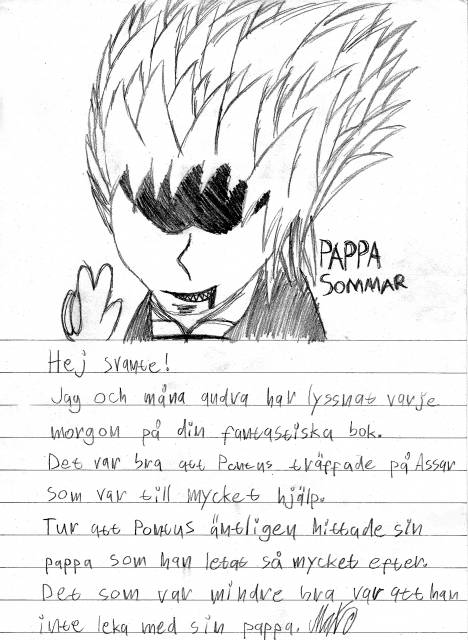 PAPPA
SOMMAR
Hej svante!
Jag och måna andra har lyssnat varje
morgon på din fantastiska bok.
Det var bra att Pontus träffade på Assar
som var till mycket hjälp.
Tur att Pontus äntligen hittade sin
pappa som han letat så mycket efter.
Det som var mindre bra var att han
inte leka med sin pappa.